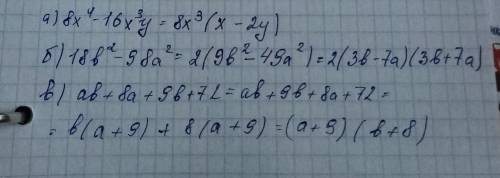 а) 8x⁴-16x³y = 8x³(x-2y)
б) 18b²-98a²= 2(9b²-49a²)=2(3b-7a)(3b+7a)
в) ab+8a+9b+72=ab+9b+8a+72=
= b(a+9) + 8(a+9)=(a+9)(b+8)